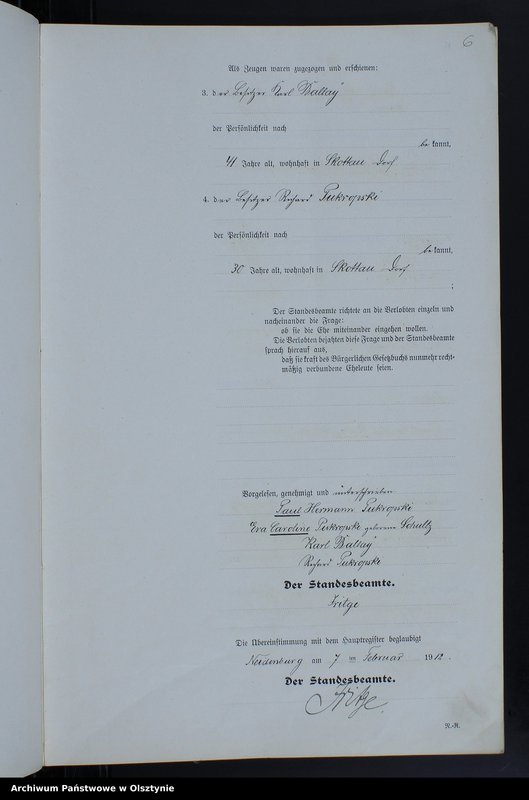 6
Als Zeugen waren zugezogen und erschienen:
3. der Besitzer Karl Ballay
der Persönlichkeit nach
be kannt,
41 Jahre alt, wohnhaft in Skottau Dorf
4. der Besitzer Richard Pukropski
der Persönlichkeit nach
be kannt,
30 Jahre alt, wohnhaft in Skottau Dorf
;
Der Standesbeamte richtete an die Verlobten einzeln und
nacheinander die Frage:
ob sie die Ehe miteinander eingehen wollen.
Die Verlobten bejahten diese Frage und der Standesbeamte
sprach hierauf aus,
daß sie kraft des Bürgerlichen Gesetzbuchs nunmehr recht-
mäßig verbundene Eheleute seien.
Vorgelesen, genehmigt und unterschrieben
Paul Hermann Pukropski
Eva Caroline Pukropski geborene Schultz
Karl Ballay
Richard Pukropski
Der Standesbeamte.
Fritze
Die Übereinstimmung mit dem Hauptregister beglaubigt
Neidenburg am 7 ten Februar 1912.
Der Standesbeamte.
Fritze.
N.-R.
Archiwum Państwowe w Olsztynie